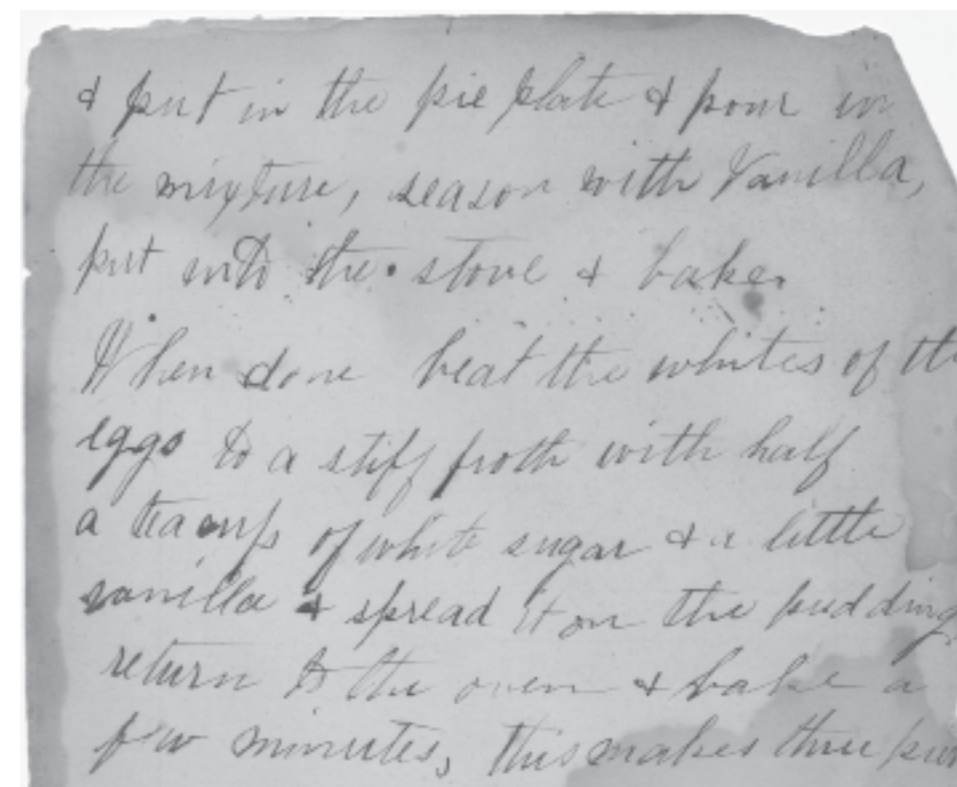 & put in the pie plate & pour in
the mixture, season with Vanilla,
put into the stove & bake.
When done beat the whites of the
eggs to a stiff froth with half
a teacup of white sugar & a little
vanilla & spread it on the pudding
return to the oven & bake a
few minutes, this makes three